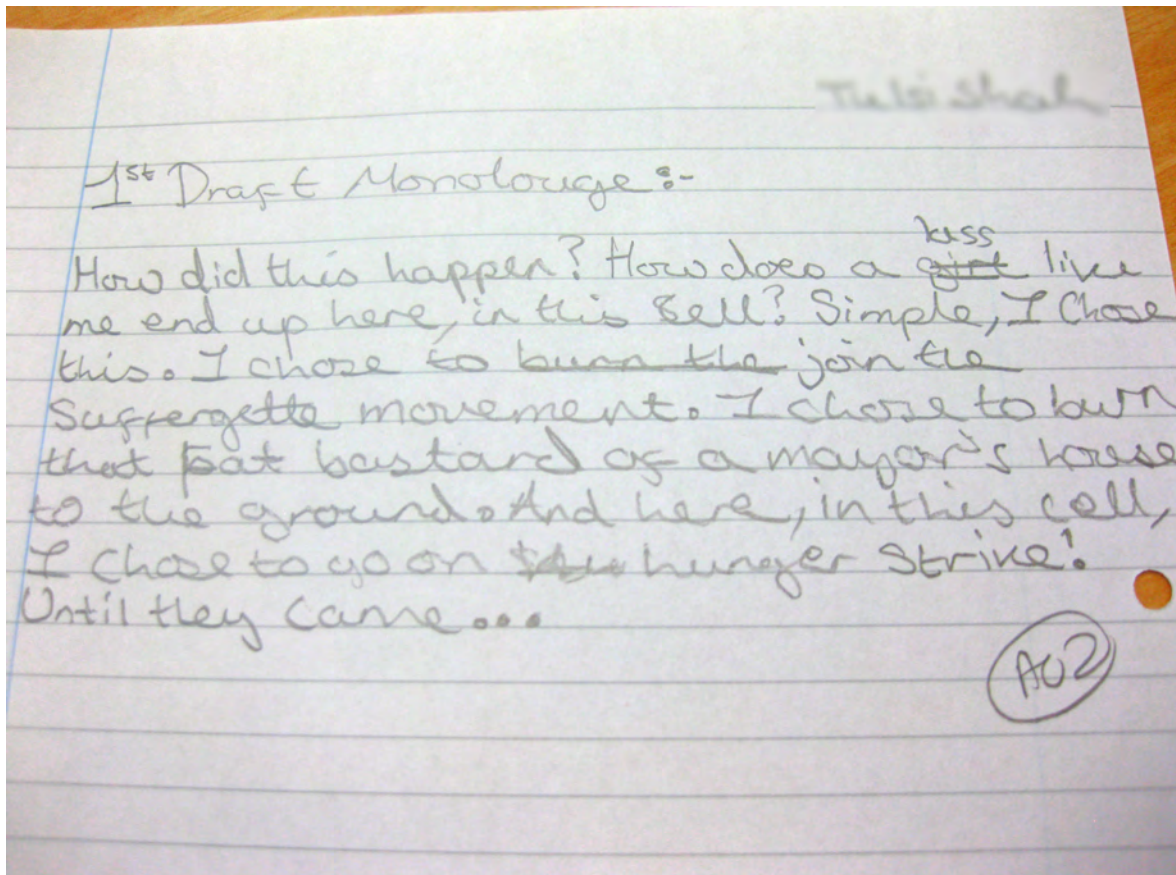 1st Draft Monolouge:-
lass
How did this happen? How does a girl like
me end up here, in this Sell? Simple, I Chose
this. I chose to burn the join the
Suffergette movement. I chose to burn
that fat bastard of a mayor's house
to the ground. And here, in this cell,
I Chose to go on hunger Strike!
Until they Came...
AO2